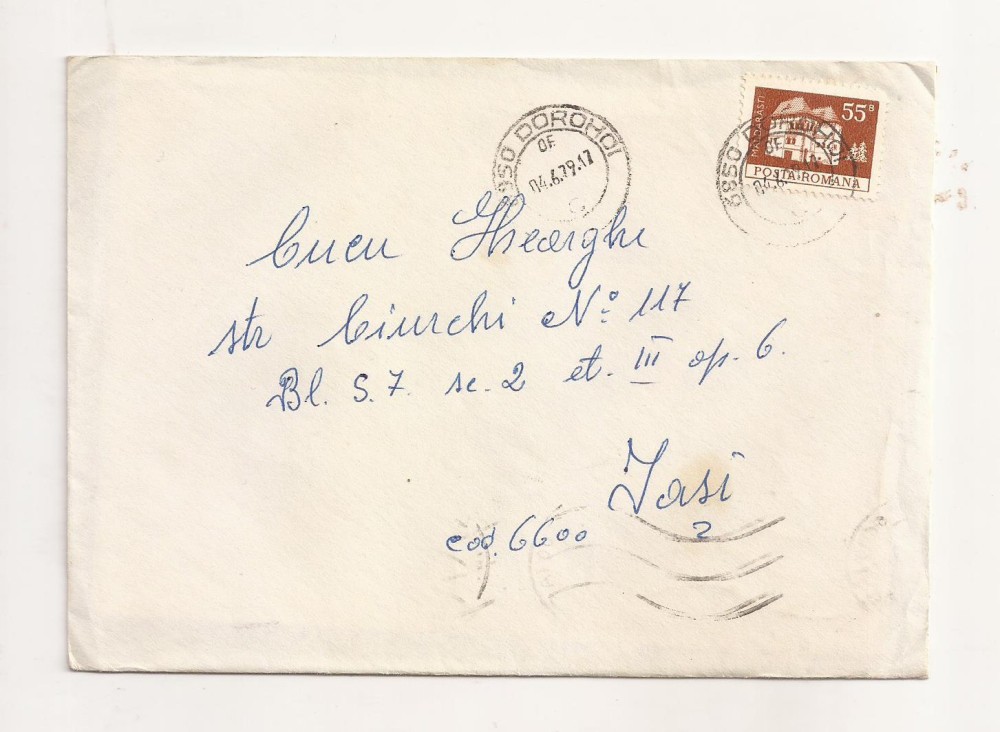 6850 DOROHOI
OF
04.6.79.17
MĂLDĂRAȘTI
55 B
POSTA ROMANA
6850 DOROHOI
OF
Cucu Gheorghe
str Ciurchi No 117
Bl. S.7. sc. 2 et. III ap. 6.
Iasi
2
cod. 6600